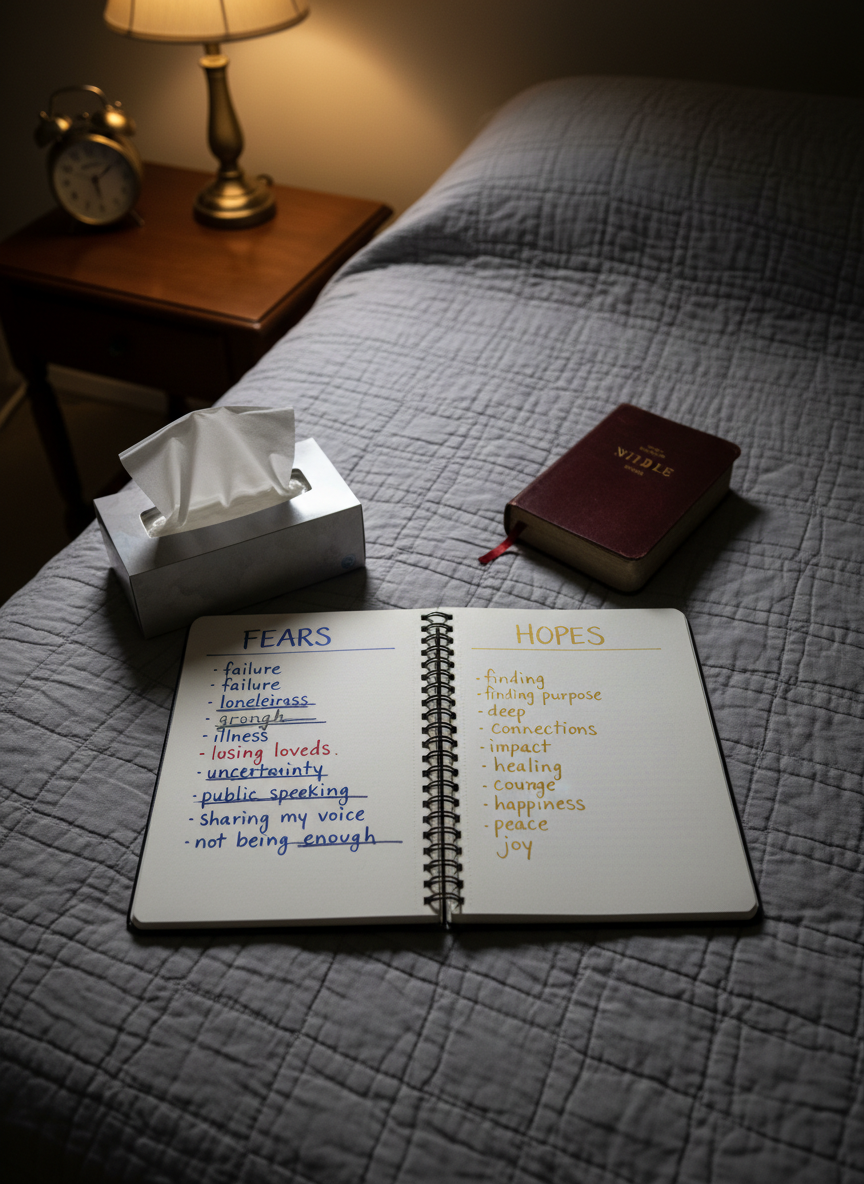 FEARS
- failure
- failure
- loneleirass
- grongh
- illness
- losing loveds.
- uncertainty
- public speeking
- sharing my voice
- not being enough
HOPES
- finding
- finding purpose
- deep
- connections
- impact
- healing
- counge
- happiness
- peace
joy